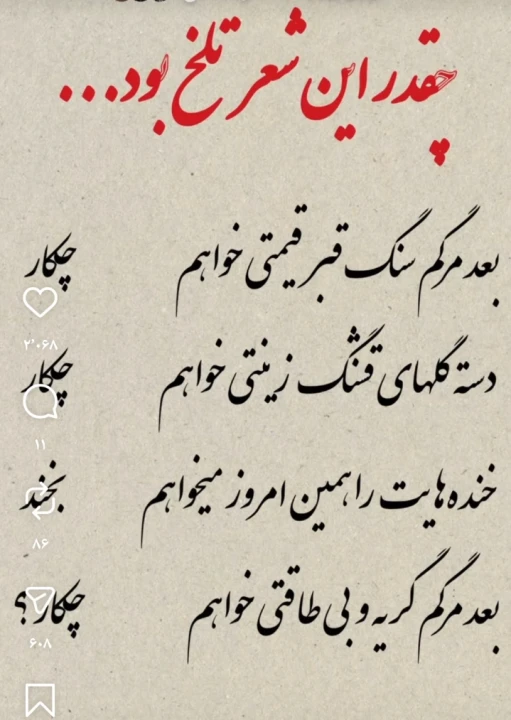 چقدر این شعر تلخ بود...
بعد مرگم سنگ قبر قیمتی خواهم چکار
۲٬۰۶۸
دسته گلهای قشنگ زینتی خواهم چکار
۱۱
خنده هایت را همین امروز میخواهم بخند
۸۶
بعد مرگم گریه و بی طاقتی خواهم چکار؟
۶۰۸